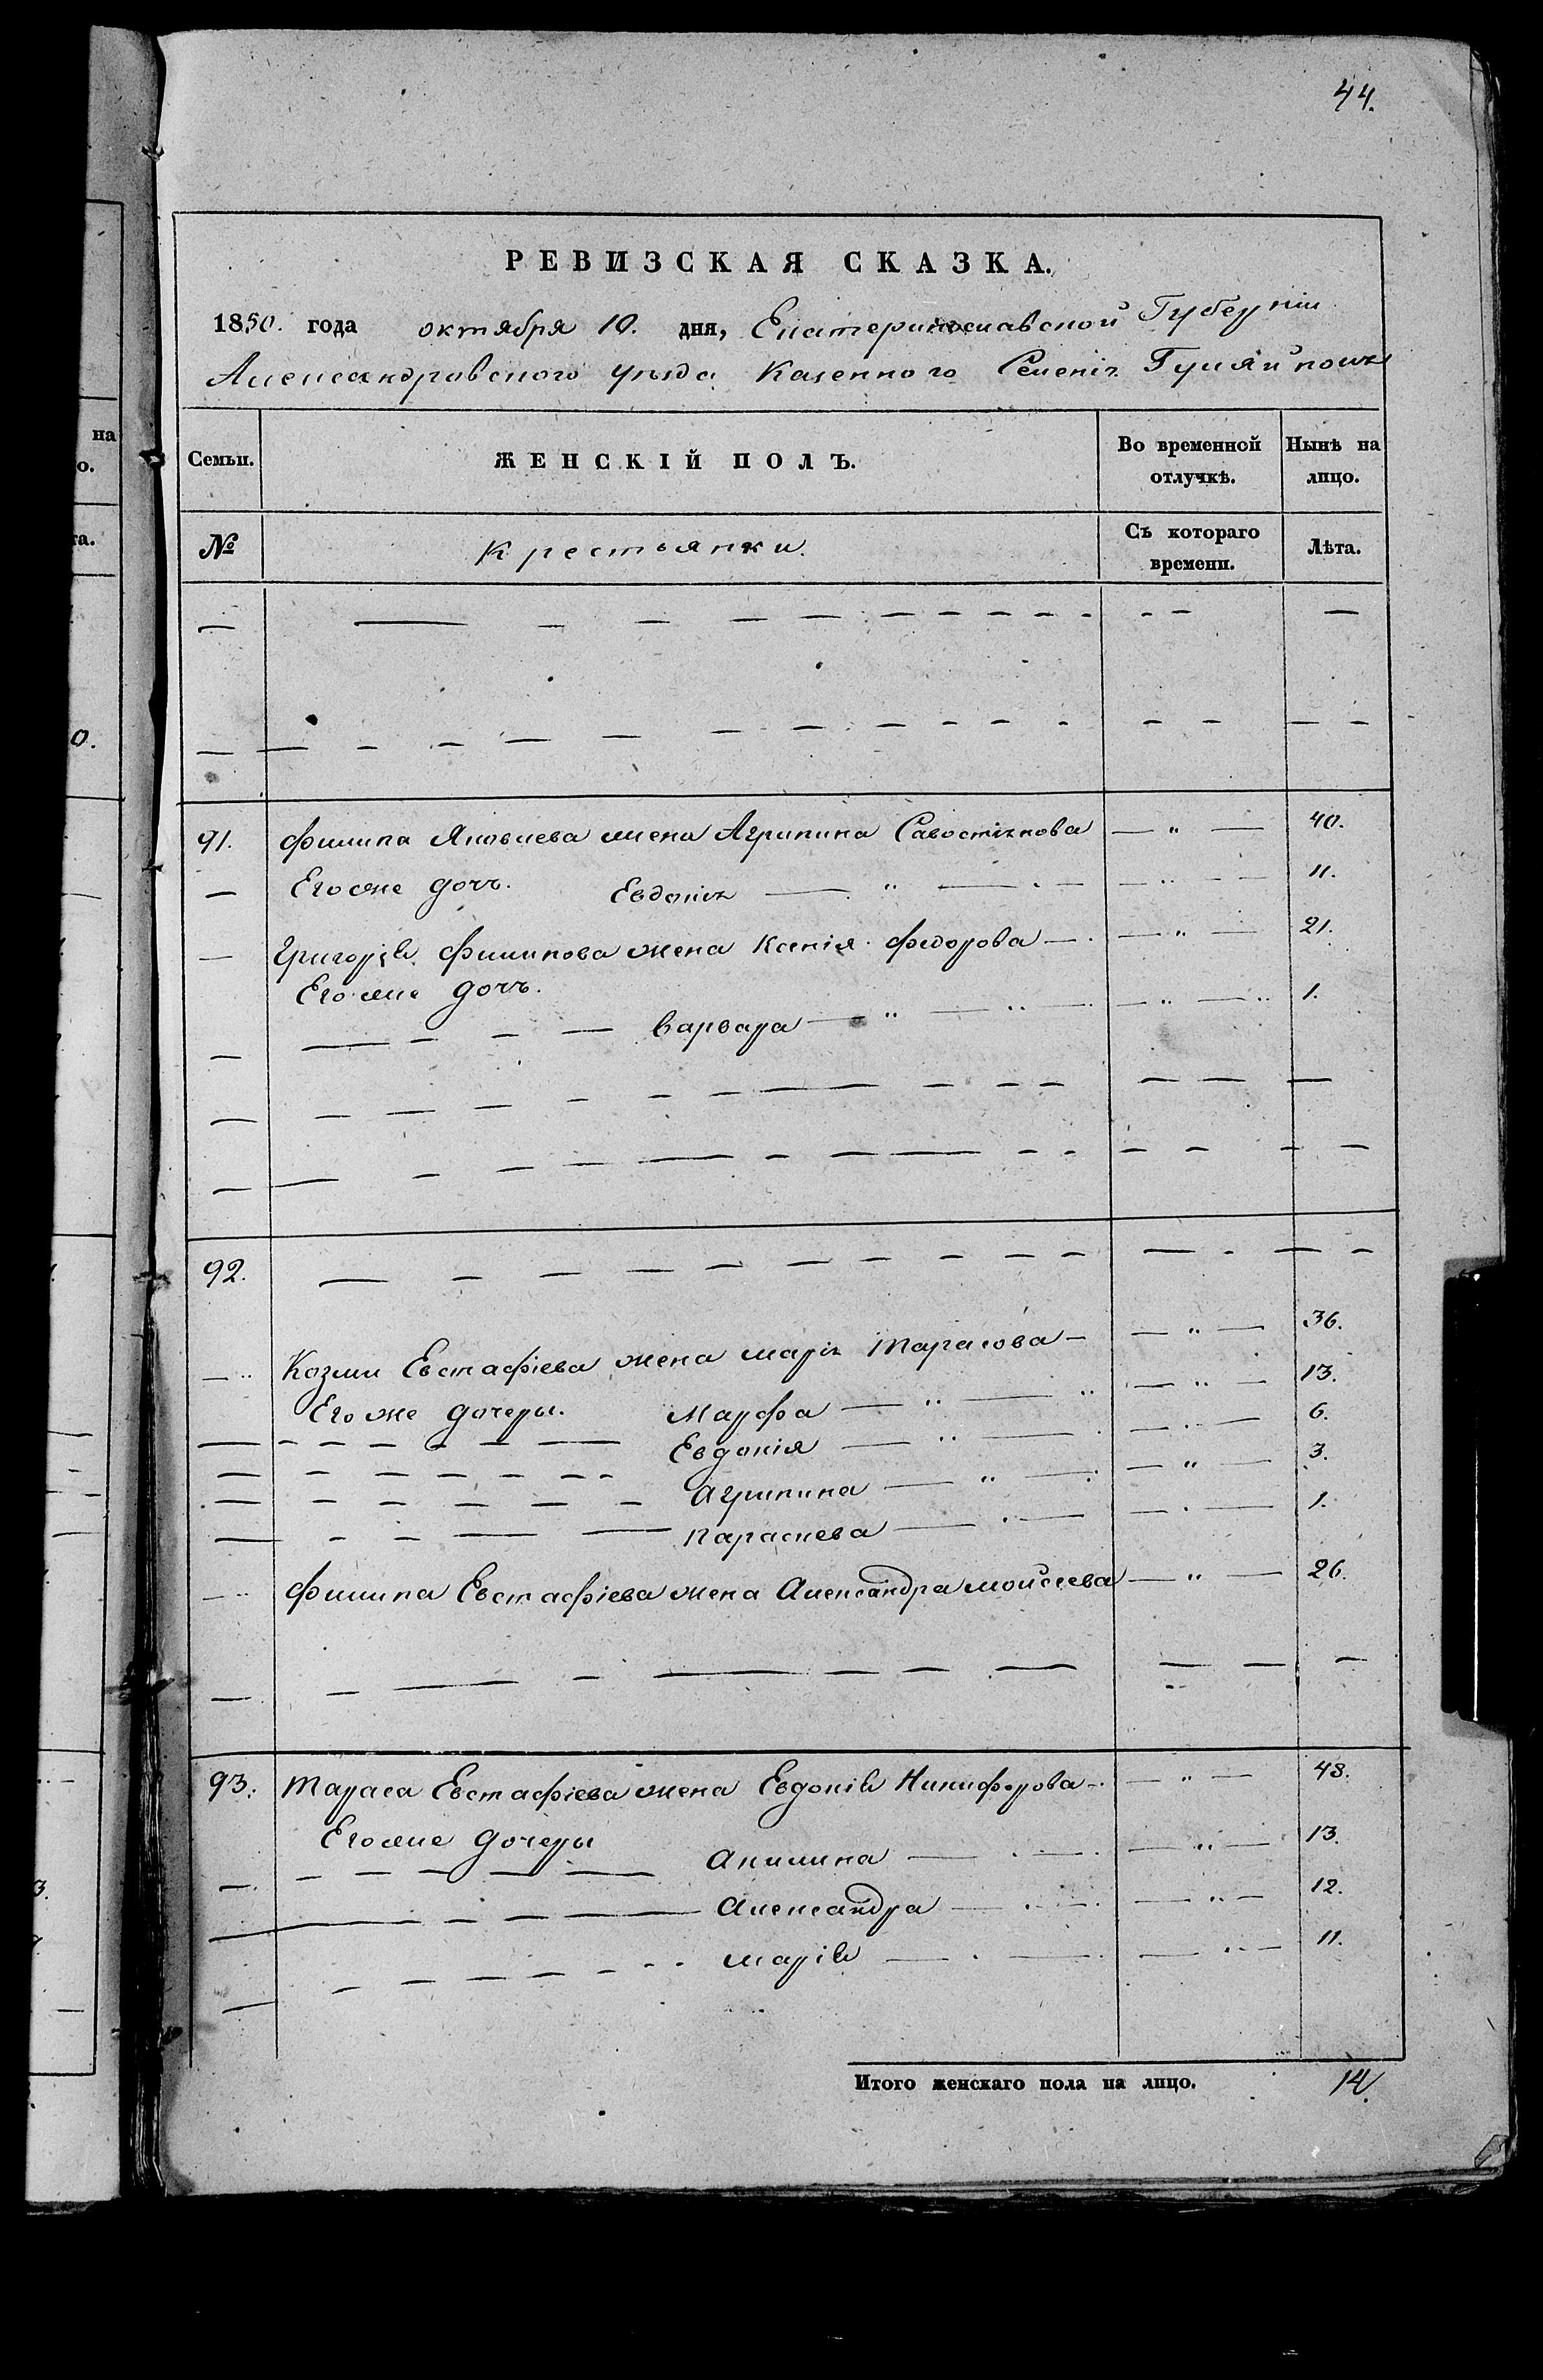 44.
РЕВИЗСКАЯ СКАЗКА.
1850. года октября 10. дня, Екатеринославской Губерніи
Александровского уѣзда Казенного Селенія Гуляйполя
Семьи. ЖЕНСКІЙ ПОЛЪ. Во временной отлучкѣ. Нынѣ на лицо.
№ Крестьянки. Съ котораго времени. Лѣта.
91. Филипа Яковлева жена Агрипина Савостіянова — " — 40.
Его же дочь. Евдокія — " — 11.
Григорія Филипова жена Ксенія Федорова — " — 21.
Его же дочь.
Варвара — " — 1.
92.
Козми Евстафіева жена марія Тарасова — " — 36.
Его же дочеры. Марфа — " — 13.
Евдокія — " — 6.
Агрипина — " — 3.
Параскева — 1.
Филипа Евстафіева жена Александра моисеева — " — 26.
93. Тараса Евстафіева жена Евдокія Никифорова — " — 48.
Его же дочеры
Акилина — " — 13.
Александра — " — 12.
марія — " — 11.
Итого женскаго пола на лицо. 14.
на
о.
та.
0.
3.